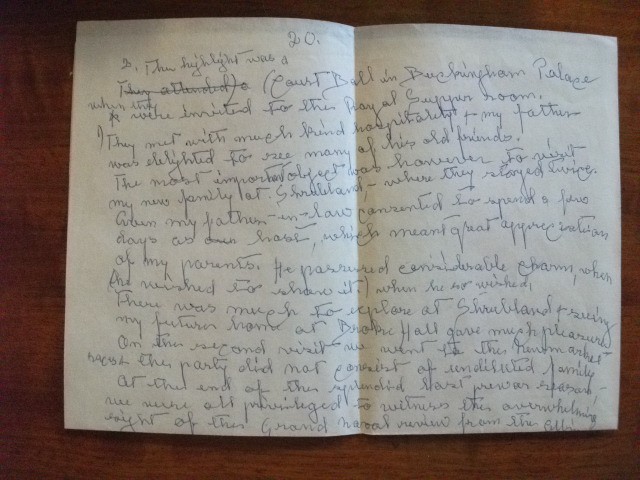 20.
2. The highlight was a
They attended a (Court Ball in Buckingham Palace
when they were invited to the Royal Supper room.
1) They met with much kind hospitality & my father
was delighted to see many of his old friends.
The most important object was however to visit
my new family at Shrubland, - where they stayed twice.
Even my father-in-law consented to spend a few
days as host, which meant great appreciation
of my parents. He possessed considerable charm, when
(he wished to show it.) when he so wished,
There was much to explore at Shrubland & seeing
my future home at Broke Hall gave much pleasure
On the second visit we went to the Newmarket
races & the party did not consist of undiluted family
At the end of this splendid last prewar season, -
we were all privileged to witness the overwhelming
sight of the Grand naval review from the